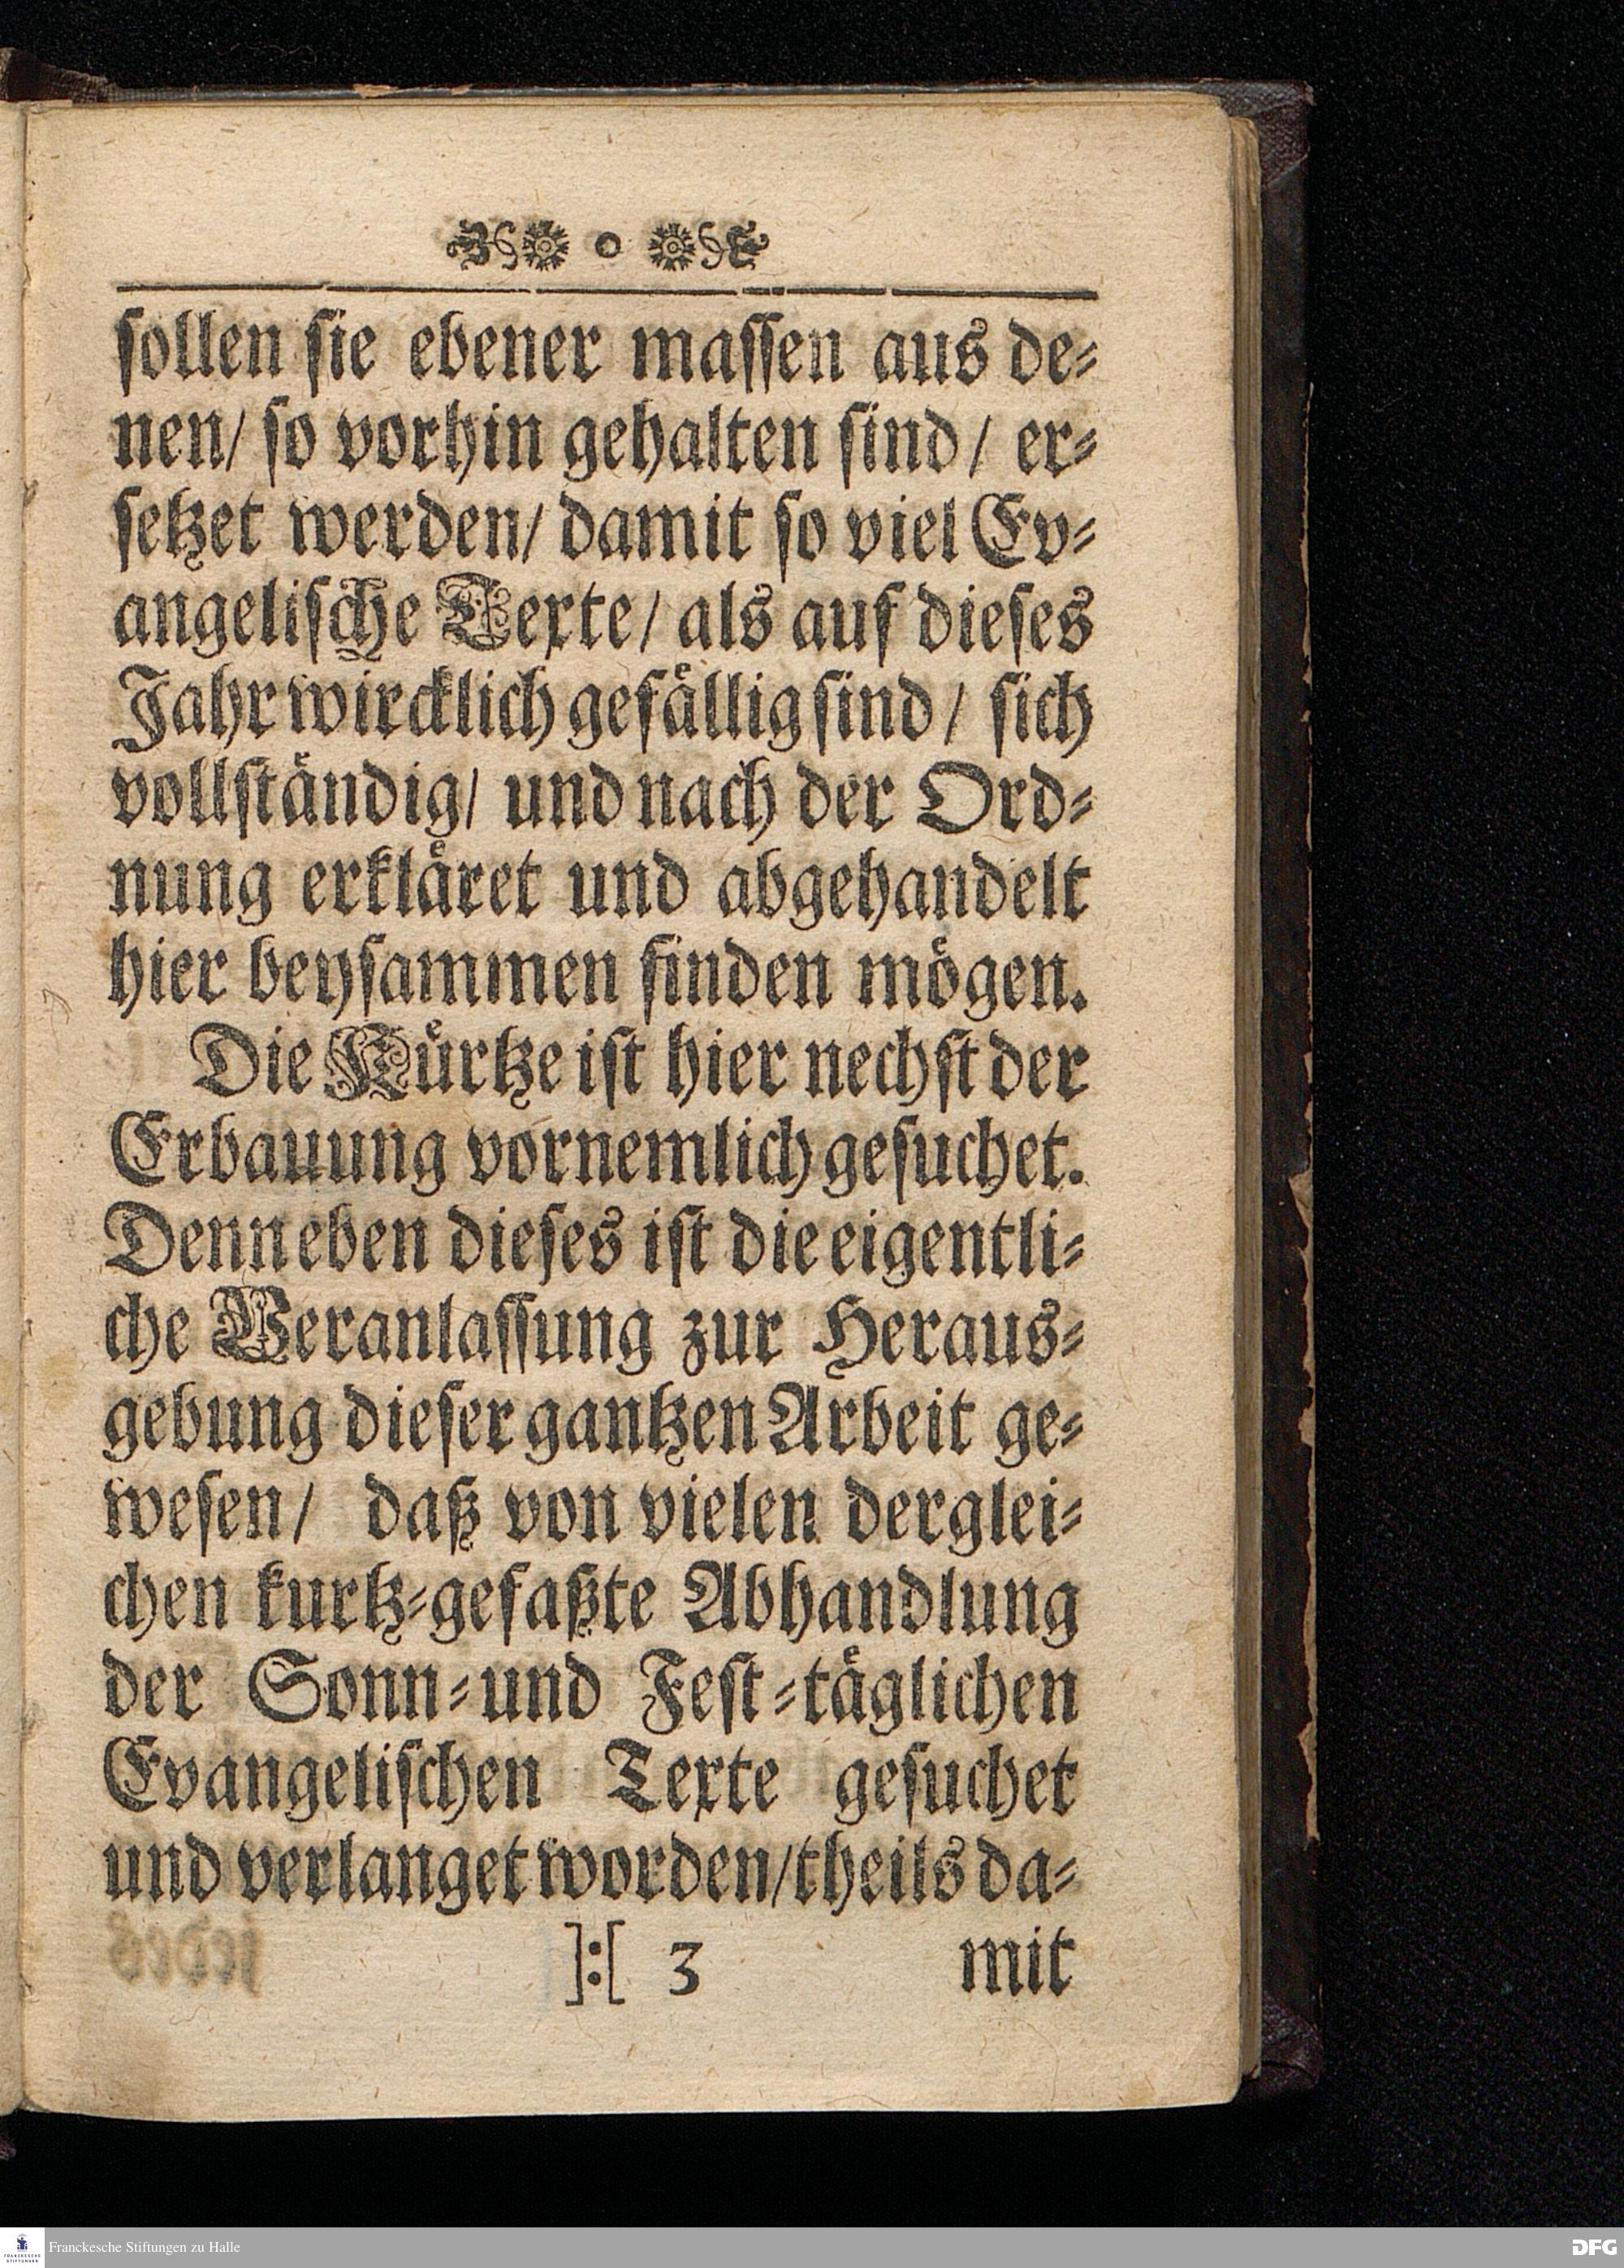 sollen sie ebener massen aus de-
nen/ so vorhin gehalten sind/ er-
setzet werden/ damit so viel Ev-
angelische Texte/ als auf dieses
Jahr wircklich gefällig sind/ sich
vollständig/ und nach der Ord-
nung erkläret und abgehandelt
hier beysammen finden mögen.
Die Kürtze ist hier nechst der
Erbauung vornemlich gesuchet.
Denn eben dieses ist die eigentli-
che Veranlassung zur Heraus-
gebung dieser gantzen Arbeit ge-
wesen/ daß von vielen derglei-
chen kurtz-gefaßte Abhandlung
der Sonn-und Fest-täglichen
Evangelischen Texte gesuchet
und verlanget worden/theils da-
]:[ 3 mit
Franckesche Stiftungen zu Halle
DFG